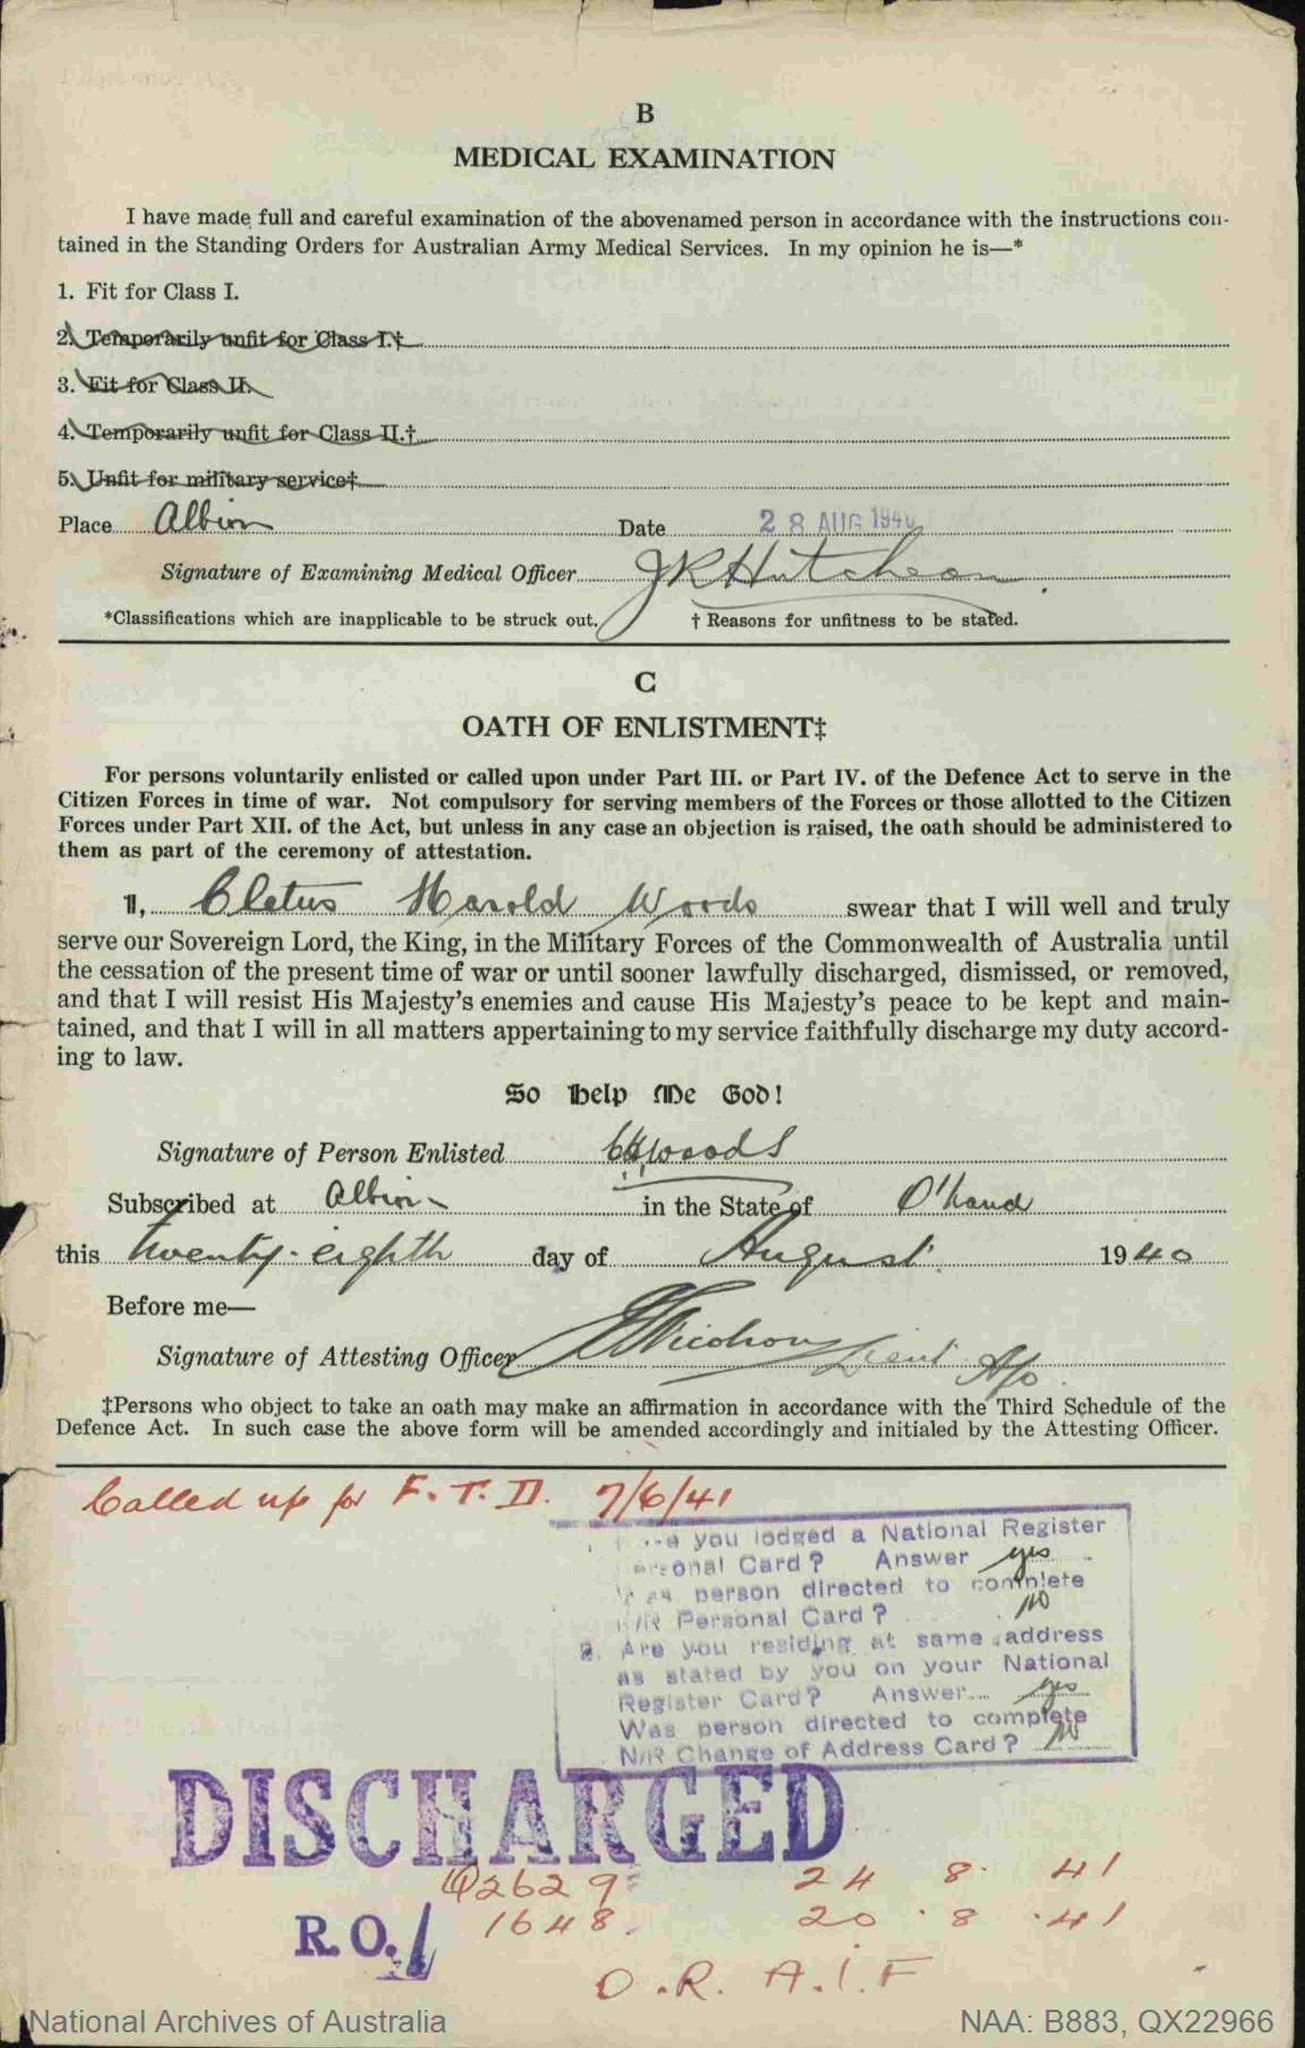 B
MEDICAL EXAMINATION
I have made full and careful examination of the abovenamed person in accordance with the instructions con-
tained in the Standing Orders for Australian Army Medical Services. In my opinion he is—*
1. Fit for Class I.
2. Temporarily unfit for Class I.†
3. Fit for Class II.
4. Temporarily unfit for Class II.†
5. Unfit for military service†
Place Albion Date 28 AUG 1940
Signature of Examining Medical Officer JR Hutcheon
*Classifications which are inapplicable to be struck out. † Reasons for unfitness to be stated.
C
OATH OF ENLISTMENT‡
For persons voluntarily enlisted or called upon under Part III. or Part IV. of the Defence Act to serve in the
Citizen Forces in time of war. Not compulsory for serving members of the Forces or those allotted to the Citizen
Forces under Part XII. of the Act, but unless in any case an objection is raised, the oath should be administered to
them as part of the ceremony of attestation.
I, Cletus Harold Woods swear that I will well and truly
serve our Sovereign Lord, the King, in the Military Forces of the Commonwealth of Australia until
the cessation of the present time of war or until sooner lawfully discharged, dismissed, or removed,
and that I will resist His Majesty's enemies and cause His Majesty's peace to be kept and main-
tained, and that I will in all matters appertaining to my service faithfully discharge my duty accord-
ing to law.
So Help Me God!
Signature of Person Enlisted CHWoods
Subscribed at Albion in the State of Q'land
this twenty-eighth day of August 1940
Before me—
Signature of Attesting Officer Lieut A/o
‡Persons who object to take an oath may make an affirmation in accordance with the Third Schedule of the
Defence Act. In such case the above form will be amended accordingly and initialed by the Attesting Officer.
Called up for F.T.D. 7/6/41
you lodged a National Register
Personal Card? Answer yes
Was person directed to complete
N/R Personal Card? No
2. Are you residing at same address
as stated by you on your National
Register Card? Answer yes
Was person directed to complete
N/R Change of Address Card? No
DISCHARGED
Q2629 24 8 41
R.O.1 1648. 20.8.41
O.R. A.I.F
National Archives of Australia NAA: B883, QX22966